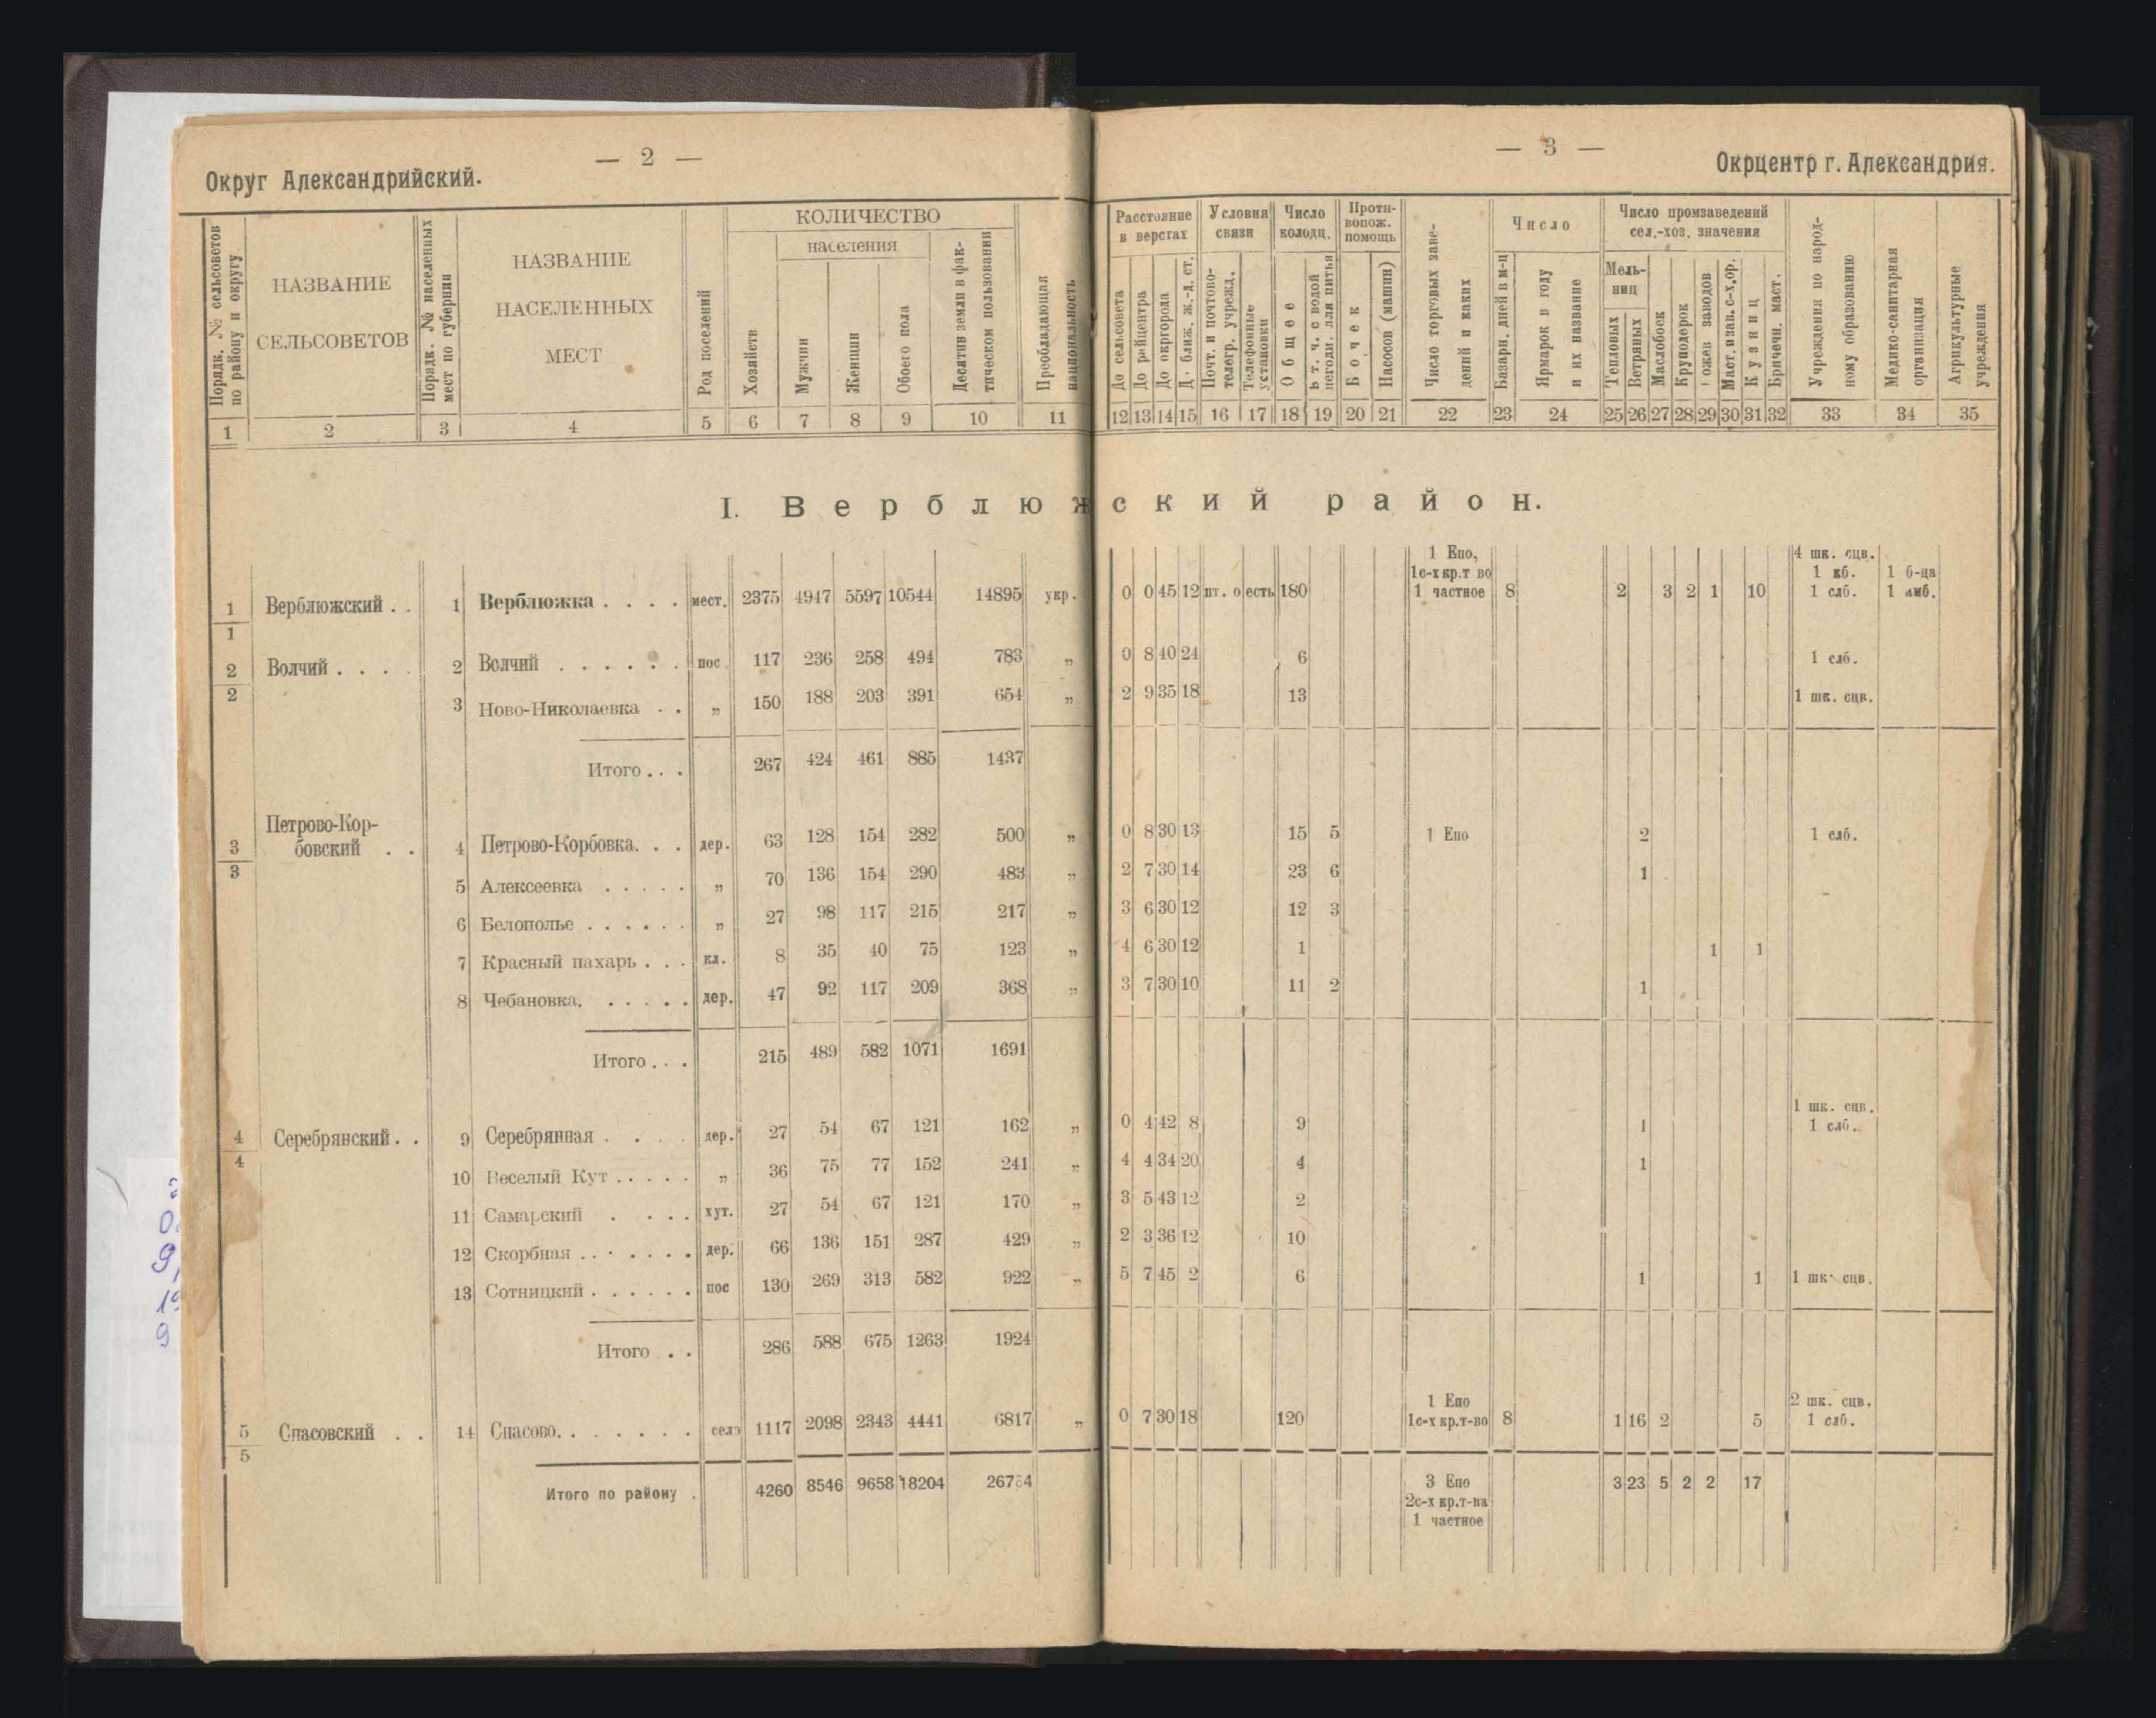 — 2 —
Округ Александрийский.
Порядк. № сельсоветов по району и округу.
НАЗВАНИЕ СЕЛЬСОВЕТОВ
Порядк. № населенных мест по губернии
НАЗВАНИЕ НАСЕЛЕННЫХ МЕСТ
Род поселений
КОЛИЧЕСТВО
населения
Хозяйств
Мужчин
Женщин
Обоего пола
Десятин земли в фактическом пользовании
Преобладающая национальность
1 2 3 4 5 6 7 8 9 10 11
— 3 —
Окрцентр г. Александрия.
Расстояние в верстах
До сельсовета
До райцентра
До окргорода
Д. ближ. ж.-д. ст.
Условия связи
Почт. и почтово-телегр. учрежд.
Телефонные установки
Число колодц.
Общее
в т. ч. с водой негодн. для питья
Проти-вопож. помощь
Бочек
Насосов (машин)
Число торговых заве-дений и каких
Число
Базарн. дней в м-ц
Ярмарок в году и их название
Число промзаведений сел.-хоз. значения
Мель-ниц
Тепловых
Ветряных
Маслобоек
Круподерок
ожев заводов
Маст. и зав. с-х. ор.
Кузниц
Бричечн. маст.
Учреждения по народ-ному образованию
Медико-санитарная организация
Агрикультурные учреждения
12 13 14 15 16 17 18 19 20 21 22 23 24 25 26 27 28 29 30 31 32 33 34 35
I. Верблюжский район.
1/1 Верблюжский . . 1 Верблюжка . . . . мест. 2375 4947 5597 10544 14895 укр. 0 0 45 12 пт. о есть 180 1 Епо, 1с-х кр.т во 1 частное 8 2 3 2 1 10 4 шк. сцв. 1 кб. 1 слб. 1 б-ца 1 амб.
2/2 Волчий . . . . 2 Волчий . . . . . . пос. 117 236 258 494 783 „ 0 8 40 24 6 1 слб.
3 Ново-Николаевка . . „ 150 188 203 391 654 „ 2 9 35 18 13 1 шк. сцв.
Итого . . . 267 424 461 885 1437
3/3 Петрово-Кор-бовский . . 4 Петрово-Корбовка. . . дер. 63 128 154 282 500 „ 0 8 30 13 15 5 1 Епо 2 1 слб.
5 Алексеевка . . . . . „ 70 136 154 290 483 „ 2 7 30 14 23 6 1
6 Белополье . . . . . . „ 27 98 117 215 217 „ 3 6 30 12 12 3
7 Красный пахарь . . . кл. 8 35 40 75 123 „ 4 6 30 12 1 1 1
8 Чебановка. . . . . . дер. 47 92 117 209 368 „ 3 7 30 10 11 2 1
Итого . . . 215 489 582 1071 1691
4/4 Серебрянский . . 9 Серебрянная . . . . дер. 27 54 67 121 162 „ 0 4 42 8 9 1 1 шк. сцв. 1 слб.
10 Веселый Кут . . . . . „ 36 75 77 152 241 „ 4 4 34 20 4 1
11 Самарский . . . . хут. 27 54 67 121 170 „ 3 5 43 12 2
12 Скорбная . . . . . . . дер. 66 136 151 287 429 „ 2 3 36 12 10
13 Сотницкий . . . . . . пос 130 269 313 582 922 „ 5 7 45 2 6 1 1 1 шк. сцв.
Итого . . 286 588 675 1263 1924
5/5 Спасовский . . 14 Спасово. . . . . . . село 1117 2098 2343 4441 6817 „ 0 7 30 18 120 1 Епо 1с-х кр.т-во 8 1 16 2 5 2 шк. сцв. 1 слб.
Итого по району . 4260 8546 9658 18204 3 Епо 2с-х кр.т-ва 1 частное 3 23 5 2 2 17